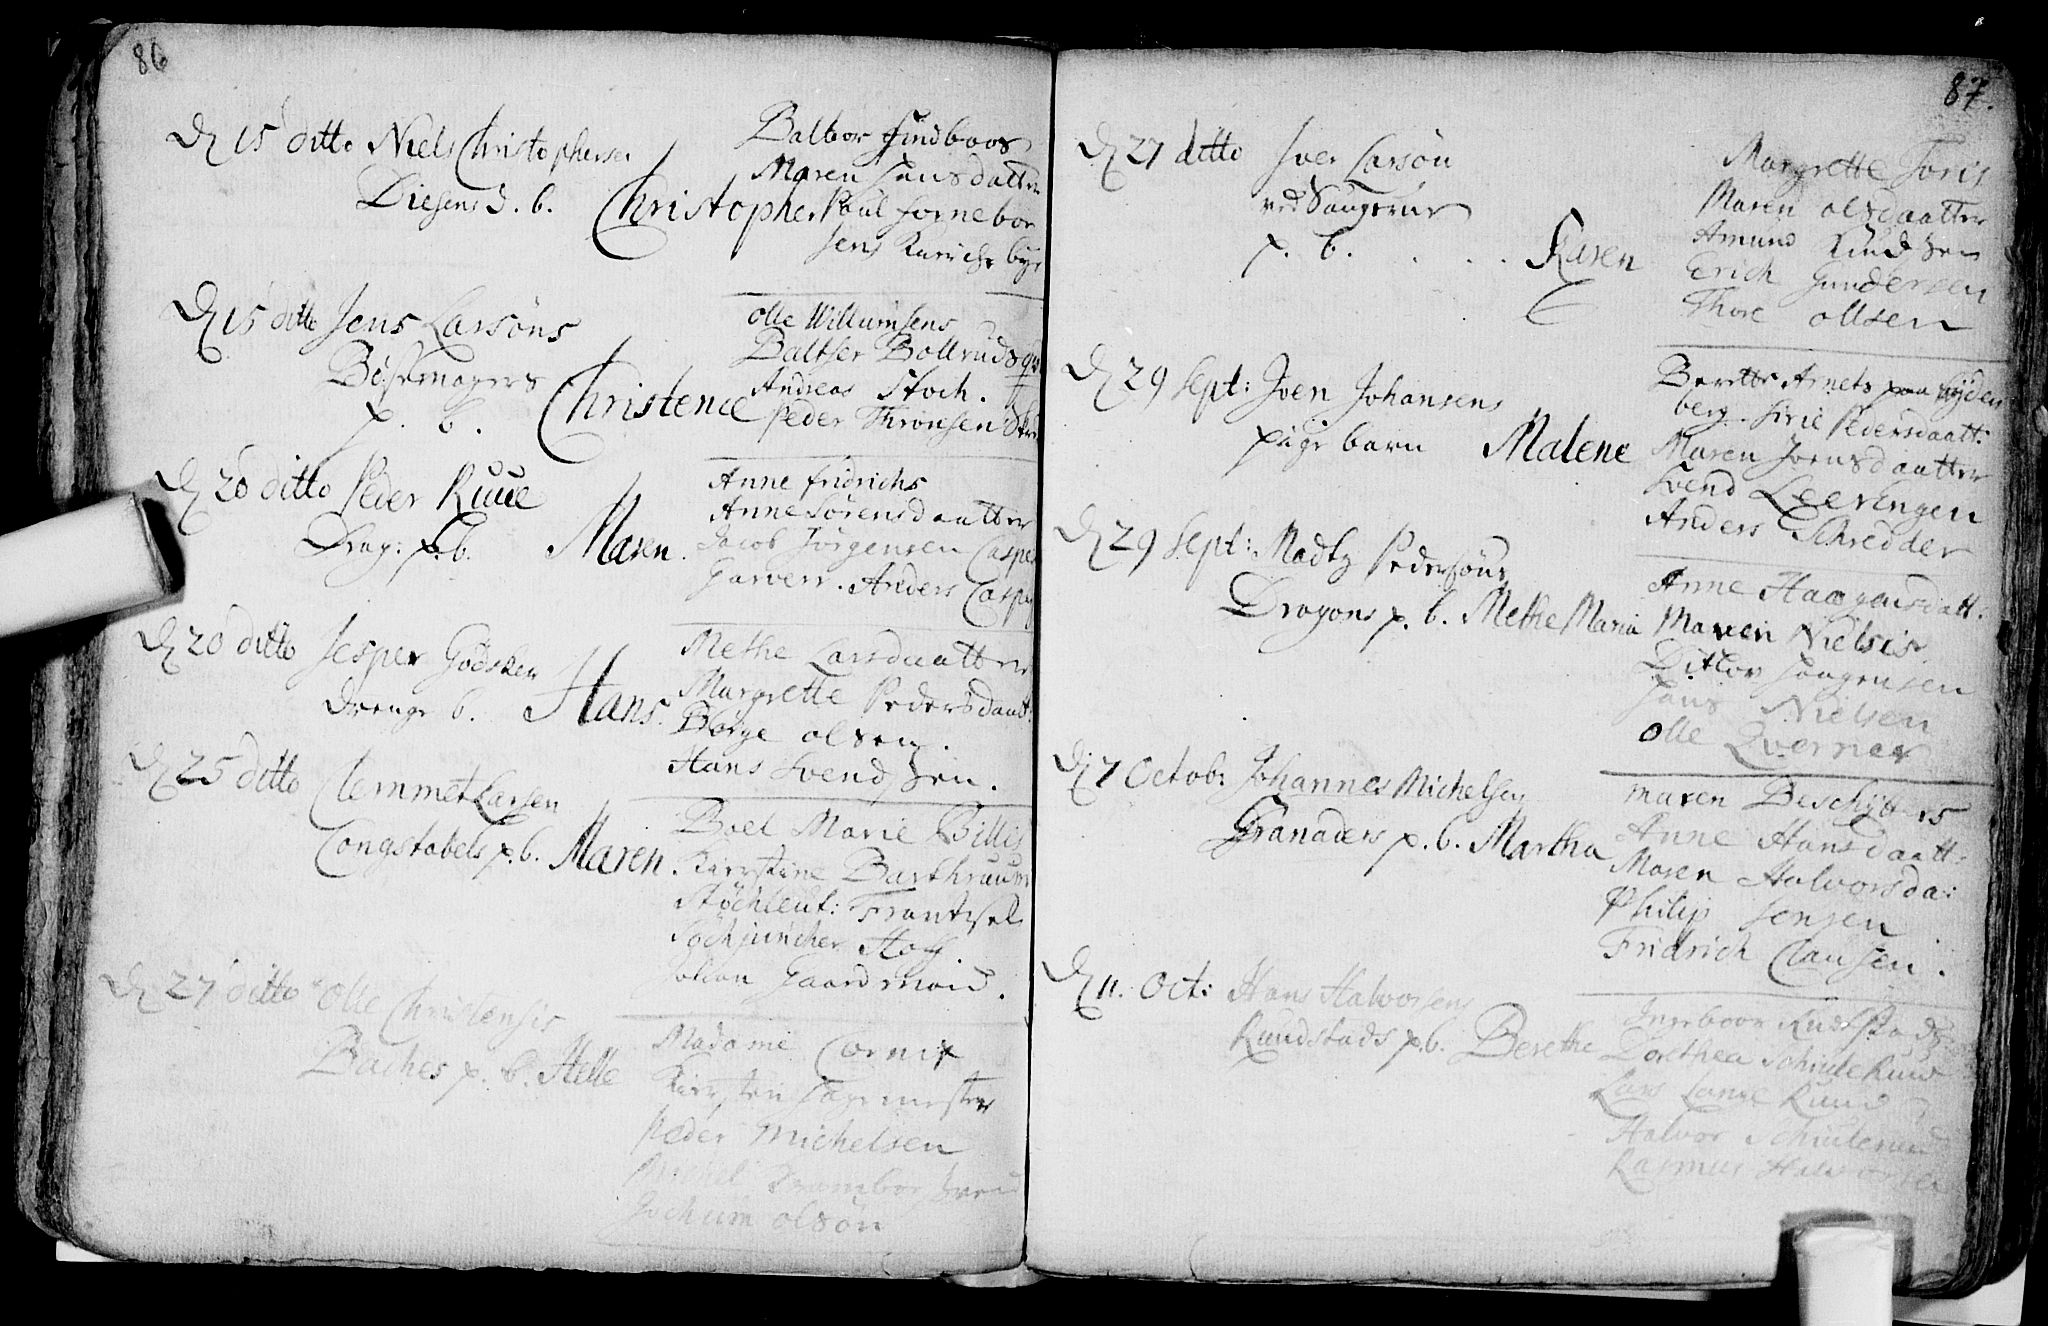 86
D 15 ditto Niels Christophersen
Diesens d. b. Christopher
Baltzor Hindboos
Maren Jensdatter
Poul
Jens
D 15 ditto Jens Larsøns
Bøssemagers
p. b. Christence
Olle Willumsens
Baltser Bollruds
Andreas Stoch.
Peder Thronsen
D 20 ditto Peder Ruue
Drag: p. b. Maren.
Anne fridrichs
Anne Sørensdaatter
Jacob Jørgensen Casper
Garverr. Anders Casper
D 20 ditto Jesper Godsken
drenge b. Hans.
Methe Larsdaatter
Margrette Pedersdaat:
Børge olsen.
Hans Svendsen.
D 25 ditto Clemmet Larsen
Congstabels p. b. Maren.
Boel Marie Billis
Kierstine Barthruuns
Støchleut: Frantzsel
Støchjuncher Hoff.
Johan Gaardmand.
D 27 ditto Olle Christensis
Baches p. b. Helle
Madame Cornix
Kiersten Jagemester
Peder Michelsen
Michel
Jochum olsøn
87.
D 27 ditto Iver Larsøn
ved Saugerne
p. b. . . . Karen
Margrette Joris
Maren olsdaatter
Amund Knudsen
Erich Gundersen
Thore ollsen
D 29 Sept: Joen Johansens
pige barn Malene
Berethe Arnets paa Ryden
berg. Sirie Pedersdaatt:
Maren Joensdaatter
Svend Leerengen
Anders Schredder
D 29 Sept: Madtz Pedersøns
Dragons p. b. Methe Maria
Anne Haagensdatt:
Maren Nielsis.
Ditlov Haagensen
Hans Nielsen
Olle Qverner
D 7 Octob: Johannes Michelsen
Granaders p. b. Martha
Maren Beschytters
Anne Hansdaatt:
Maren Halvorsda:
Philip Jensen
Fridrich Clausen.
D 11. Oct: Hans Halvorsens
Rundstads p. b. Berethe
Ingeboor Rudstads
Dorethea Schulerud
Lars Lange Ruud
Halvor Schulerud
Rasmus Halvorsen